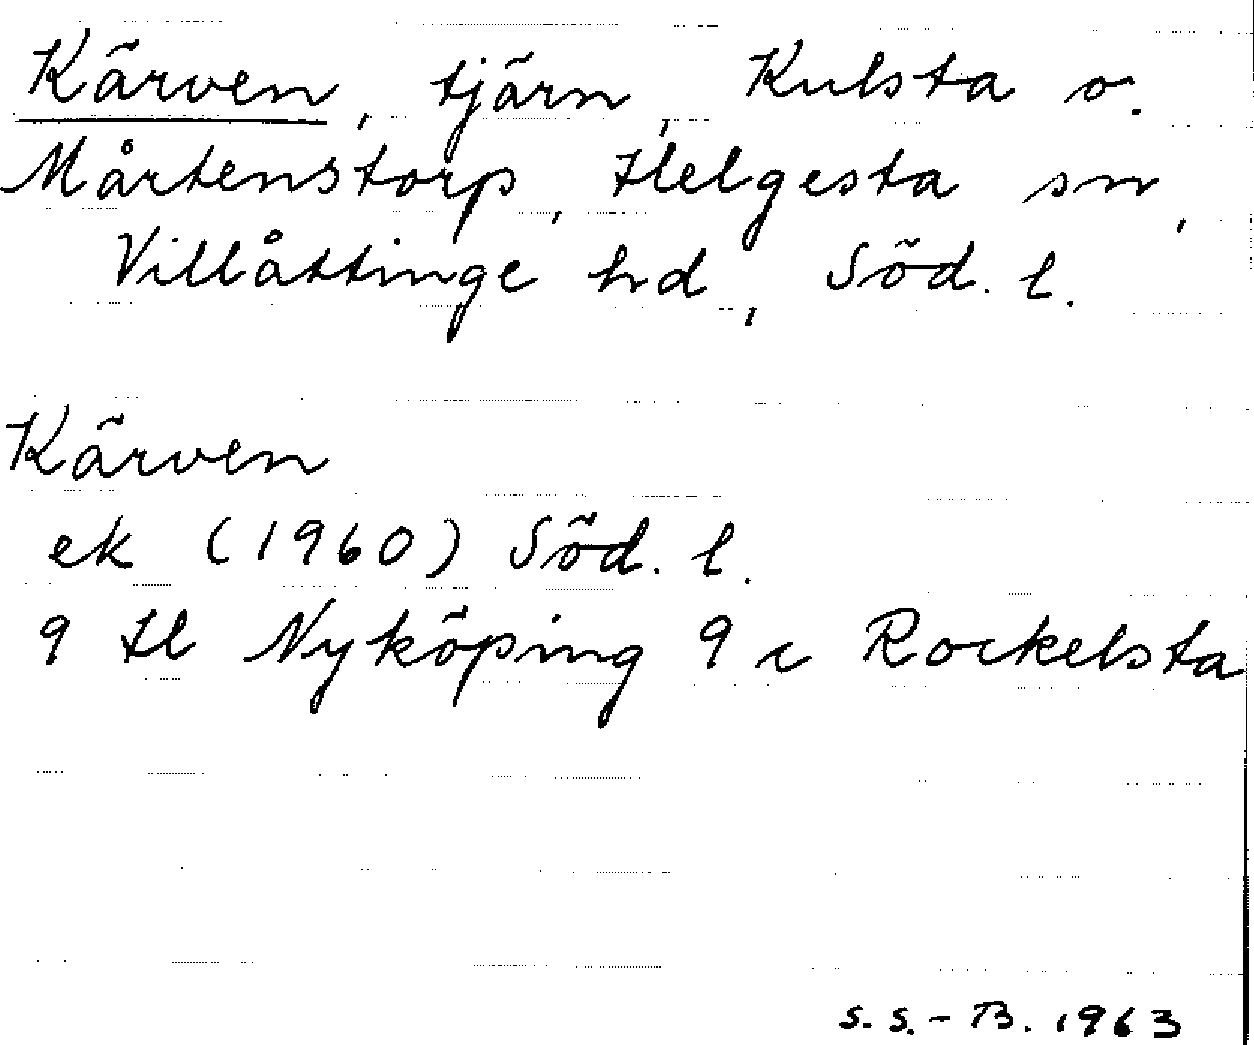 Kärven, tjärn, Kulsta o.
Mårtenstorp, Helgesta sn,
Villåttinge hd, Söd. l.
Kärven
ek (1960) Söd. l.
9 H Nyköping 9 c Rockelsta
S. S. - B. 1963